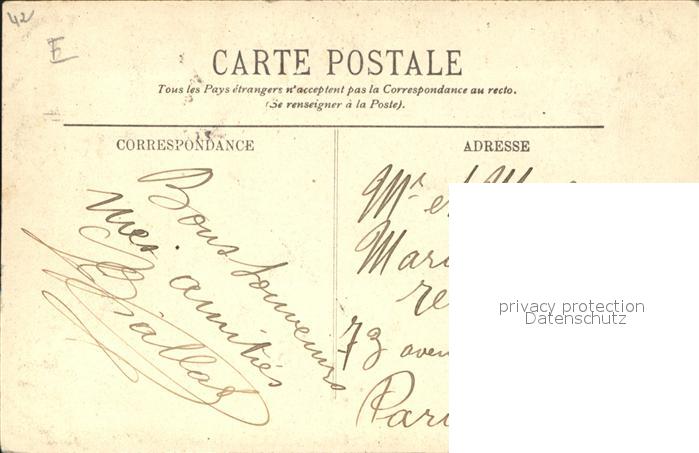 42
E
CARTE POSTALE
Tous les Pays étrangers n'acceptent pas la Correspondance au recto.
(Se renseigner à la Poste).
CORRESPONDANCE
ADRESSE
Bons Souvenirs
mes amitiés
Mr et
73 aven
Pari
privacy protection
Datenschutz